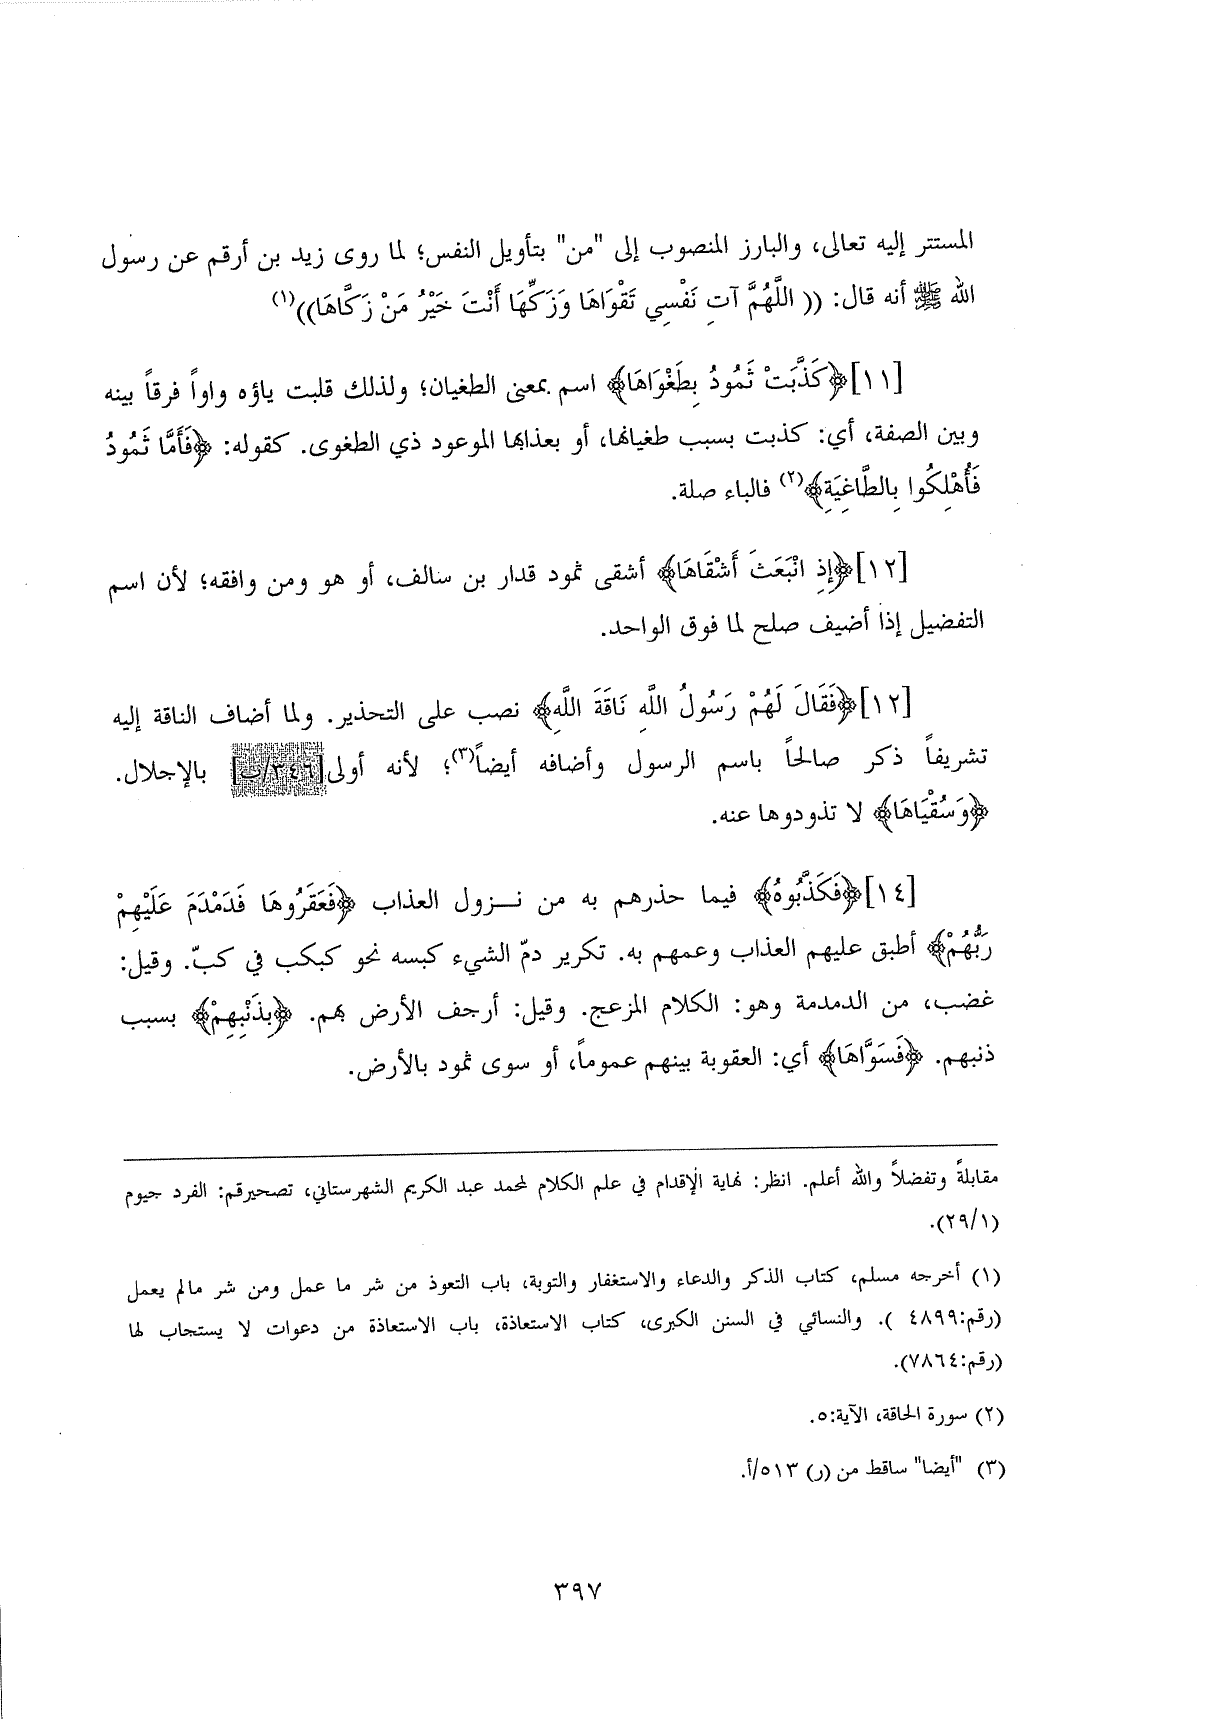 المستتر إليه تعالى، والبارز المنصوب إلى "من" بتأويل النفس؛ لما روى زيد بن أرقم عن رسول
الله ﷺ أنه قال: (( اللَّهُمَّ آتِ نَفْسِي تَقْوَاهَا وَزَكِّهَا أَنْتَ خَيْرُ مَنْ زَكَّاهَا))(١)
[١١]﴿كَذَّبَتْ ثَمُودُ بِطَغْوَاهَا﴾ اسم بمعنى الطغيان؛ ولذلك قلبت ياؤه واواً فرقاً بينه
وبين الصفة، أي: كذبت بسبب طغيانها، أو بعذابها الموعود ذي الطغوى. كقوله: ﴿فَأَمَّا ثَمُودُ
فَأُهْلِكُوا بِالطَّاغِيَةِ﴾(٢) فالباء صلة.
[١٢]﴿إِذِ انْبَعَثَ أَشْقَاهَا﴾ أشقى ثمود قدار بن سالف، أو هو ومن وافقه؛ لأن اسم
التفضيل إذا أضيف صلح لما فوق الواحد.
[١٢]﴿فَقَالَ لَهُمْ رَسُولُ اللَّهِ نَاقَةَ اللَّهِ﴾ نصب على التحذير. ولما أضاف الناقة إليه
تشريفاً ذكر صالحاً باسم الرسول وأضافه أيضاً(٣)؛ لأنه أولى[٣٤٦/ب] بالإجلال.
﴿وَسُقْيَاهَا﴾ لا تذودوها عنه.
[١٤]﴿فَكَذَّبُوهُ﴾ فيما حذرهم به من نــزول العذاب ﴿فَعَقَرُوهَا فَدَمْدَمَ عَلَيْهِمْ
رَبُّهُمْ﴾ أطبق عليهم العذاب وعمهم به. تكرير دمّ الشيء كبسه نحو كبكب في كبّ. وقيل:
غضب، من الدمدمة وهو: الكلام المزعج. وقيل: أرجف الأرض بهم. ﴿بِذَنْبِهِمْ﴾ بسبب
ذنبهم. ﴿فَسَوَّاهَا﴾ أي: العقوبة بينهم عموماً، أو سوى ثمود بالأرض.
مقابلةً وتفضلاً والله أعلم. انظر: نهاية الإقدام في علم الكلام لمحمد عبد الكريم الشهرستاني، تصحيرقم: الفرد جيوم
(٢٩/١).
(١) أخرجه مسلم، كتاب الذكر والدعاء والاستغفار والتوبة، باب التعوذ من شر ما عمل ومن شر مالم يعمل
(رقم:٤٨٩٩ ). والنسائي في السنن الكبرى، كتاب الاستعاذة، باب الاستعاذة من دعوات لا يستجاب لها
(رقم:٧٨٦٤).
(٢) سورة الحاقة، الآية:٥.
(٣) "أيضا" ساقط من (ر) ٥١٣/أ.
٣٩٧